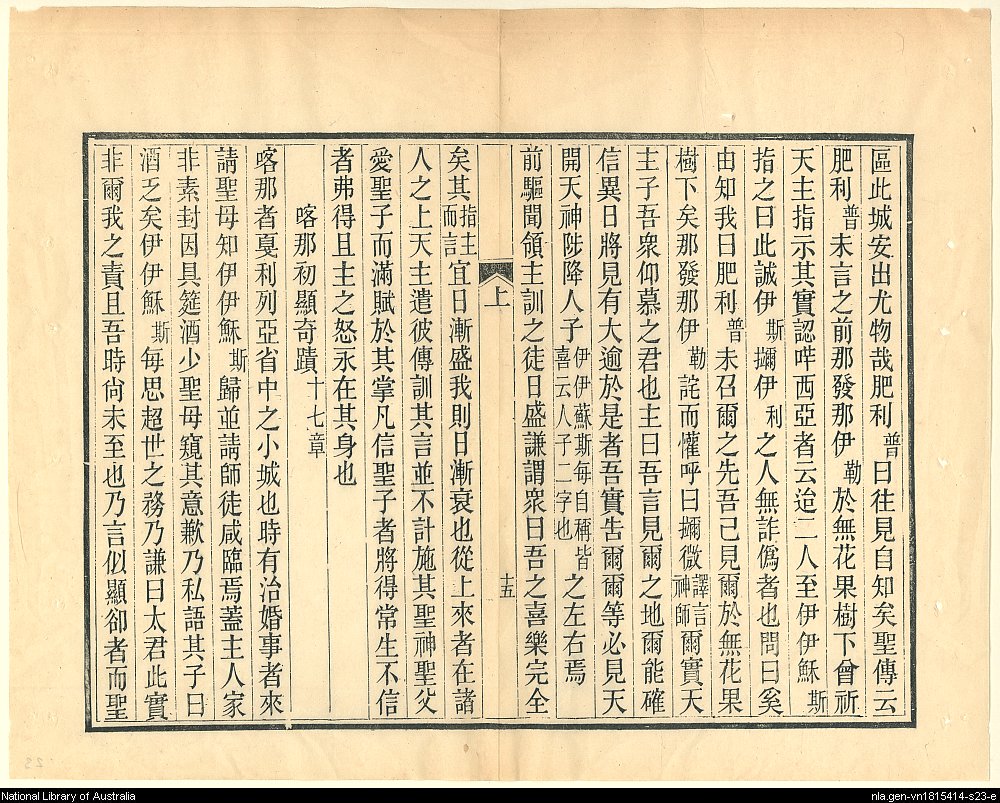 區此城安出尤物哉肥利普曰往見自知矣聖傳云
肥利普未言之前那發那伊勒於無花果樹下曾祈
天主指示其實認哶西亞者云迨二人至伊伊穌斯
指之曰此誠伊斯擱伊利之人無詐僞者也問曰奚
由知我曰肥利普未召爾之先吾已見爾於無花果
樹下矣那發那伊勒詫而懽呼曰擱微譯言神師爾實天
主子吾衆仰慕之君也主曰吾言見爾之地爾能確
信異日將見有大逾於是者吾實告爾爾等必見天
開天神陟降人子伊伊蘇斯每自稱皆喜云人子二字也之左右焉
前驅聞領主訓之徒日盛謙謂衆曰吾之喜樂完全
上
十五
矣其指主而言宜日漸盛我則日漸衰也從上來者在諸
人之上天主遣彼傳訓其言並不計施其聖神聖父
愛聖子而滿賦於其掌凡信聖子者將得常生不信
者弗得且主之怒永在其身也
喀那初顯奇蹟十七章
喀那者戛利列亞省中之小城也時有治婚事者來
請聖母知伊伊穌斯歸並請師徒咸臨焉蓋主人家
非素封因具筵酒少聖母窺其意歉乃私語其子曰
酒乏矣伊伊穌斯每思超世之務乃謙曰太君此實
非爾我之責且吾時尙未至也乃言似顯卻者而聖
National Library of Australia
nla.gen-vn1815414-s23-e